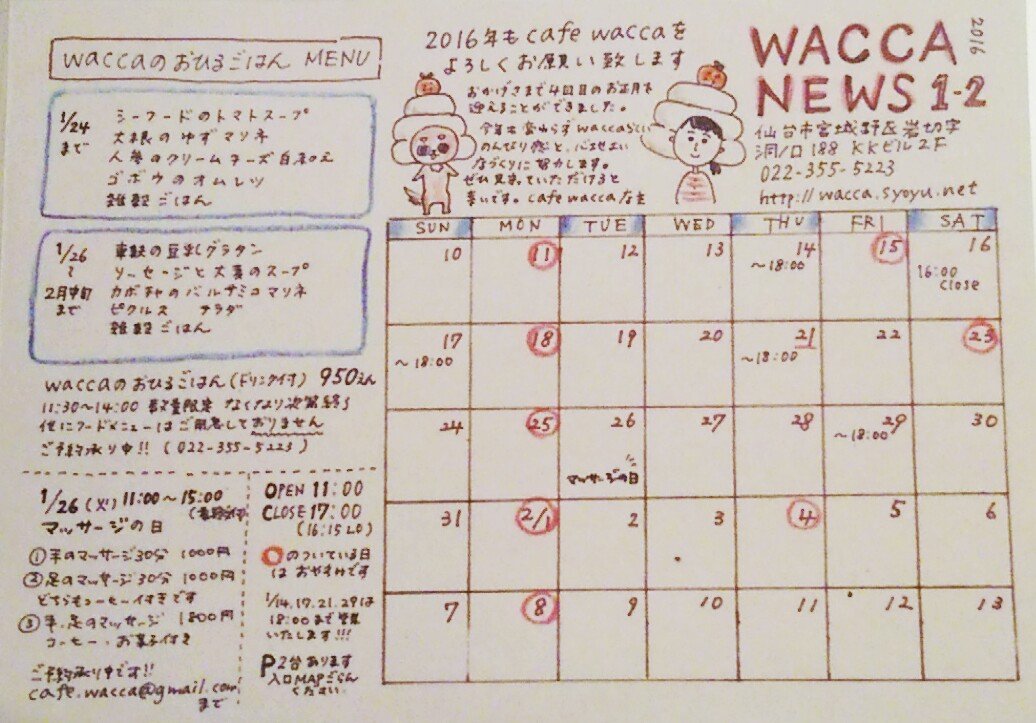 waccaのおひるごはん MENU
1/24
まで
シーフードのトマトスープ
大根のゆずマリネ
人参のクリームチーズ白和え
ゴボウのオムレツ
雑穀ごはん
1/26
〜
2月中旬
まで
車麩の豆乳グラタン
ソーセージと大豆のスープ
カボチャのバルサミコマリネ
ピクルス サラダ
雑穀ごはん
waccaのおひるごはん(ドリンク付) 950えん
11:30〜14:00 数量限定 なくなり次第終了
他にフードメニューはご用意しておりません
ご予約承り中!! (022-355-5223)
1/26(火) 11:00〜15:00
マッサージの日
① 手のマッサージ30分 1000円
② 足のマッサージ30分 1000円
どちらもコーヒー付きです
③ 手、足のマッサージ 1800円
コーヒー、お菓子付き
ご予約承り中です!!
cafe.wacca@gmail.com
まで
OPEN 11:00
CLOSE 17:00
(16:15 LO)
○のついている日
は おやすみです
1/14.17.21.29は
18:00まで営業
いたします!!!
P2台あります
入口MAPごらん
ください
2016年もcafe waccaを
よろしくお願い致します
おかげさまで4回目のお正月を
迎えることができました。
今年も変わらずwaccaらしい
のんびり感と、心地よい
店づくりに努力します。
ぜひ見守っていただけると
幸いです。cafe wacca店主
WACCA
NEWS 1-2
2016
仙台市宮城野区岩切字
洞ノ口188 KKビル2F
022-355-5223
http://wacca.syoyu.net
SUN MON TUE WED THU FRI SAT
10 11 12 13 14 15 16
〜18:00 16:00
close
17 18 19 20 21 22 23
〜18:00 〜18:00
24 25 26 27 28 29 30
マッサージの日 〜18:00
31 2/1 2 3 4 5 6
7 8 9 10 11 12 13